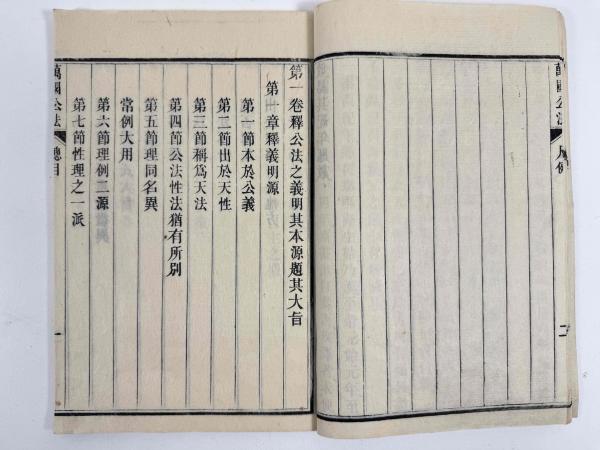 萬國公法
凡例
二
第一卷釋公法之義明其本源題其大旨
第一章釋義明源
第一節本於公義
第二節出於天性
第三節稱爲天法
第四節公法性法猶有所別
第五節理同名異
常例大用
第六節理例二源
第七節性理之一派
萬國公法
總目
一